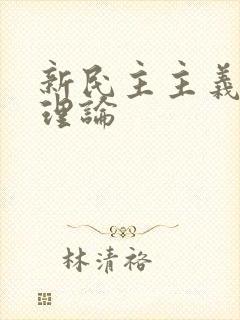 新民主主義
理論
林清裕